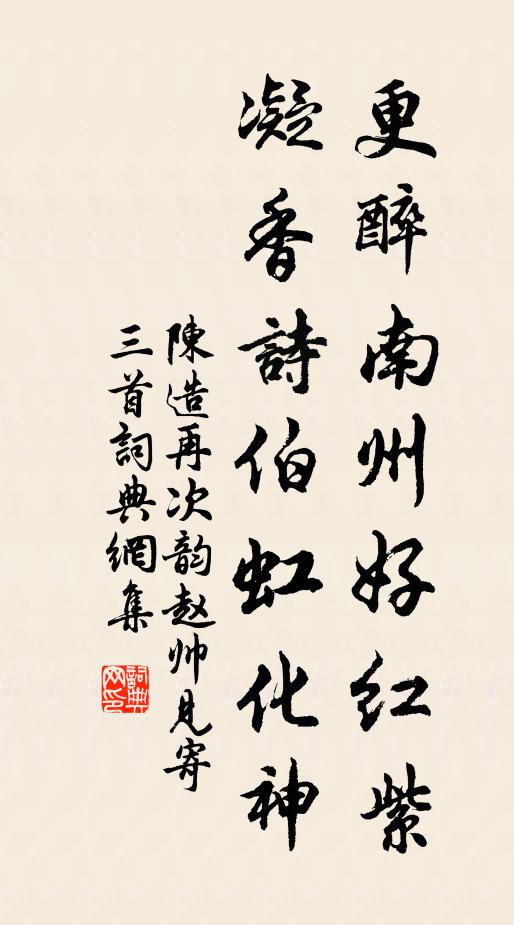 更醉南州好红紫
凝香詩伯虹化神
陳造再次韵赵帅見寄
三首詞典網集
詞典
网印